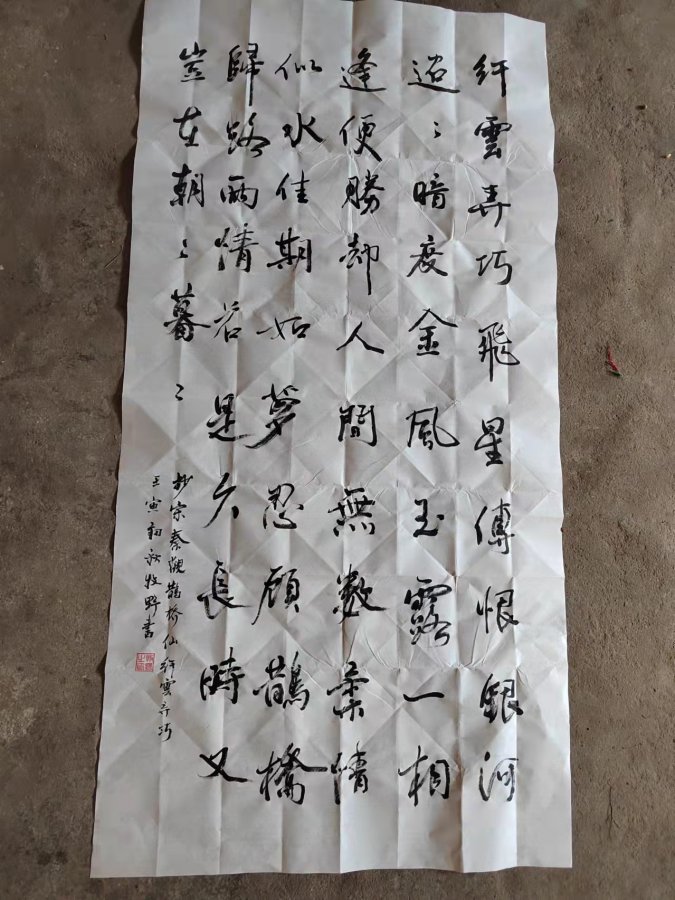 纤雲弄巧飛星傳恨銀河
迢〻暗度金風玉露一相
逢便勝却人間無數柔情
似水佳期如夢忍顧鵲橋
歸路兩情若是久長時又
豈在朝〻暮〻
抄宋秦觀鵲橋仙纤雲弄巧
壬寅初秋牧野書